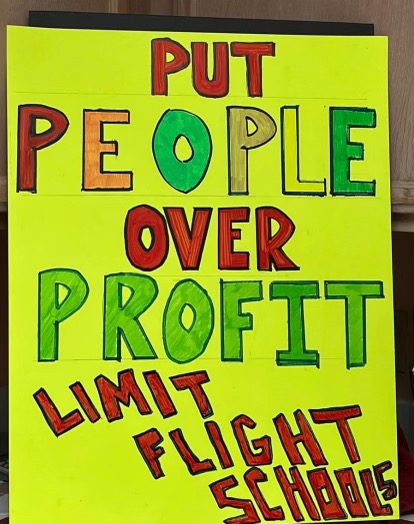 PUT
PEOPLE
OVER
PROFIT
LIMIT
FLIGHT
SCHOOLS